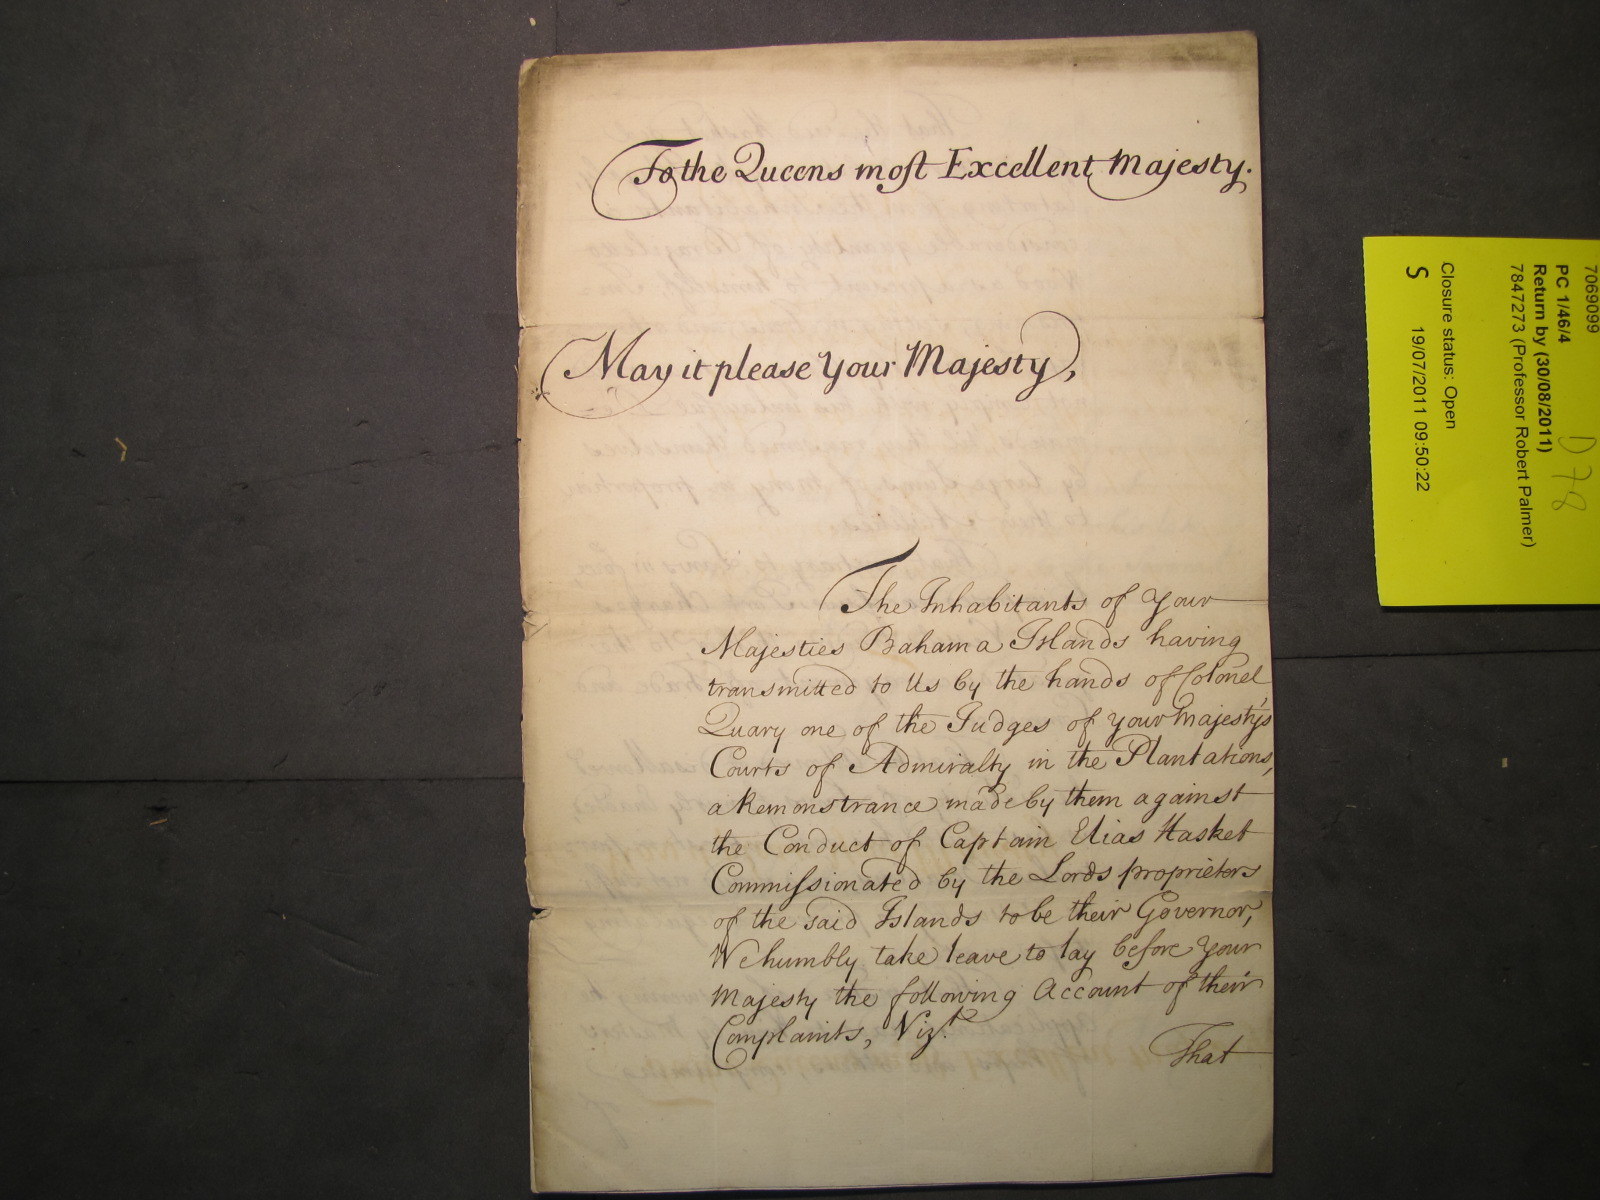 To the Queens most Excellent Majesty.
May it please Your Majesty,
The Inhabitants of Your
Majesties Bahama Islands having
transmitted to Us by the hands of Colonel
Quary one of the Judges of your Majesty's
Courts of Admiralty in the Plantations,
a Remonstrance made by them against
the Conduct of Captain Elias Hasket
Commissionated by the Lords proprietors
of the said Islands to be their Governor,
We humbly take leave to lay before Your
Majesty the following Account of their
Complaints, Vizt.
That
7069099
PC 1/46/4
Return by (30/08/2011)
7847273 (Professor Robert Palmer)
D 78
Closure status: Open
S 19/07/2011 09:50:22